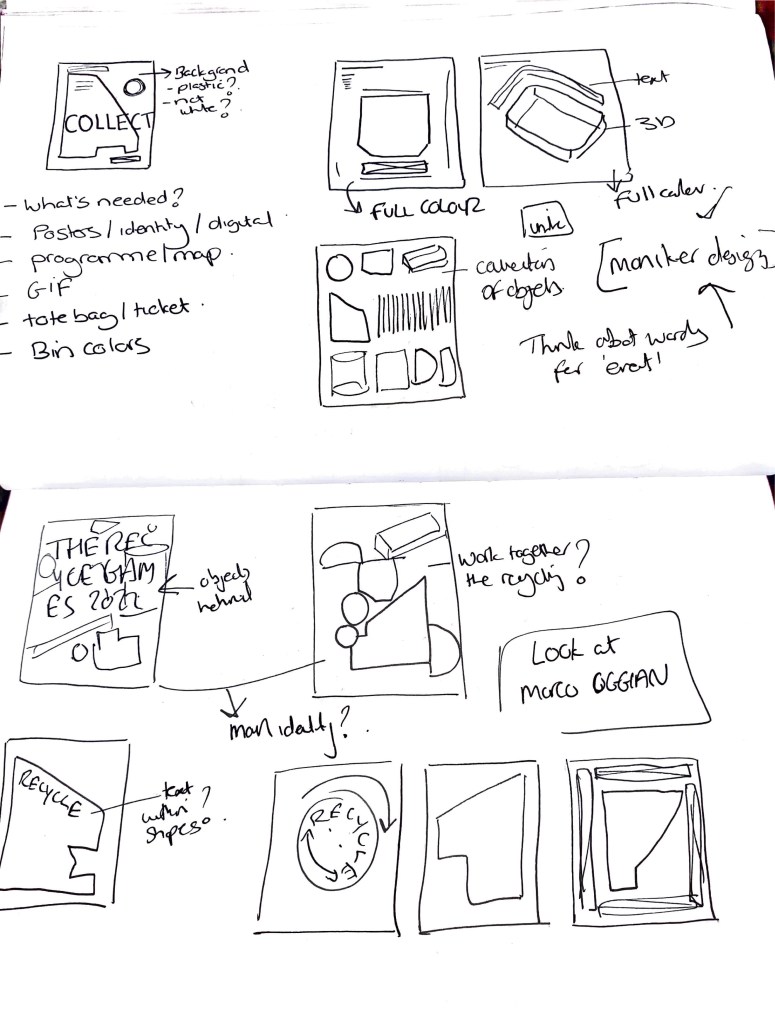 Background
- plastic?
- not
white?
COLLECT
- What's needed?
- Posters / identity / digital
- programme / map.
- GIF
- tote bag / ticket.
- Bin colors
FULL COLOUR
text
3D
full color.
of objects
[moniker design]
Think about words
for 'event'
THE REC
YCE GAM
ES 2022
objects
behind
Work together?
the recycling
Look at
Marco OGGIAN
main identity?
RECYCLE
text
within?
shapes
RECYCLE